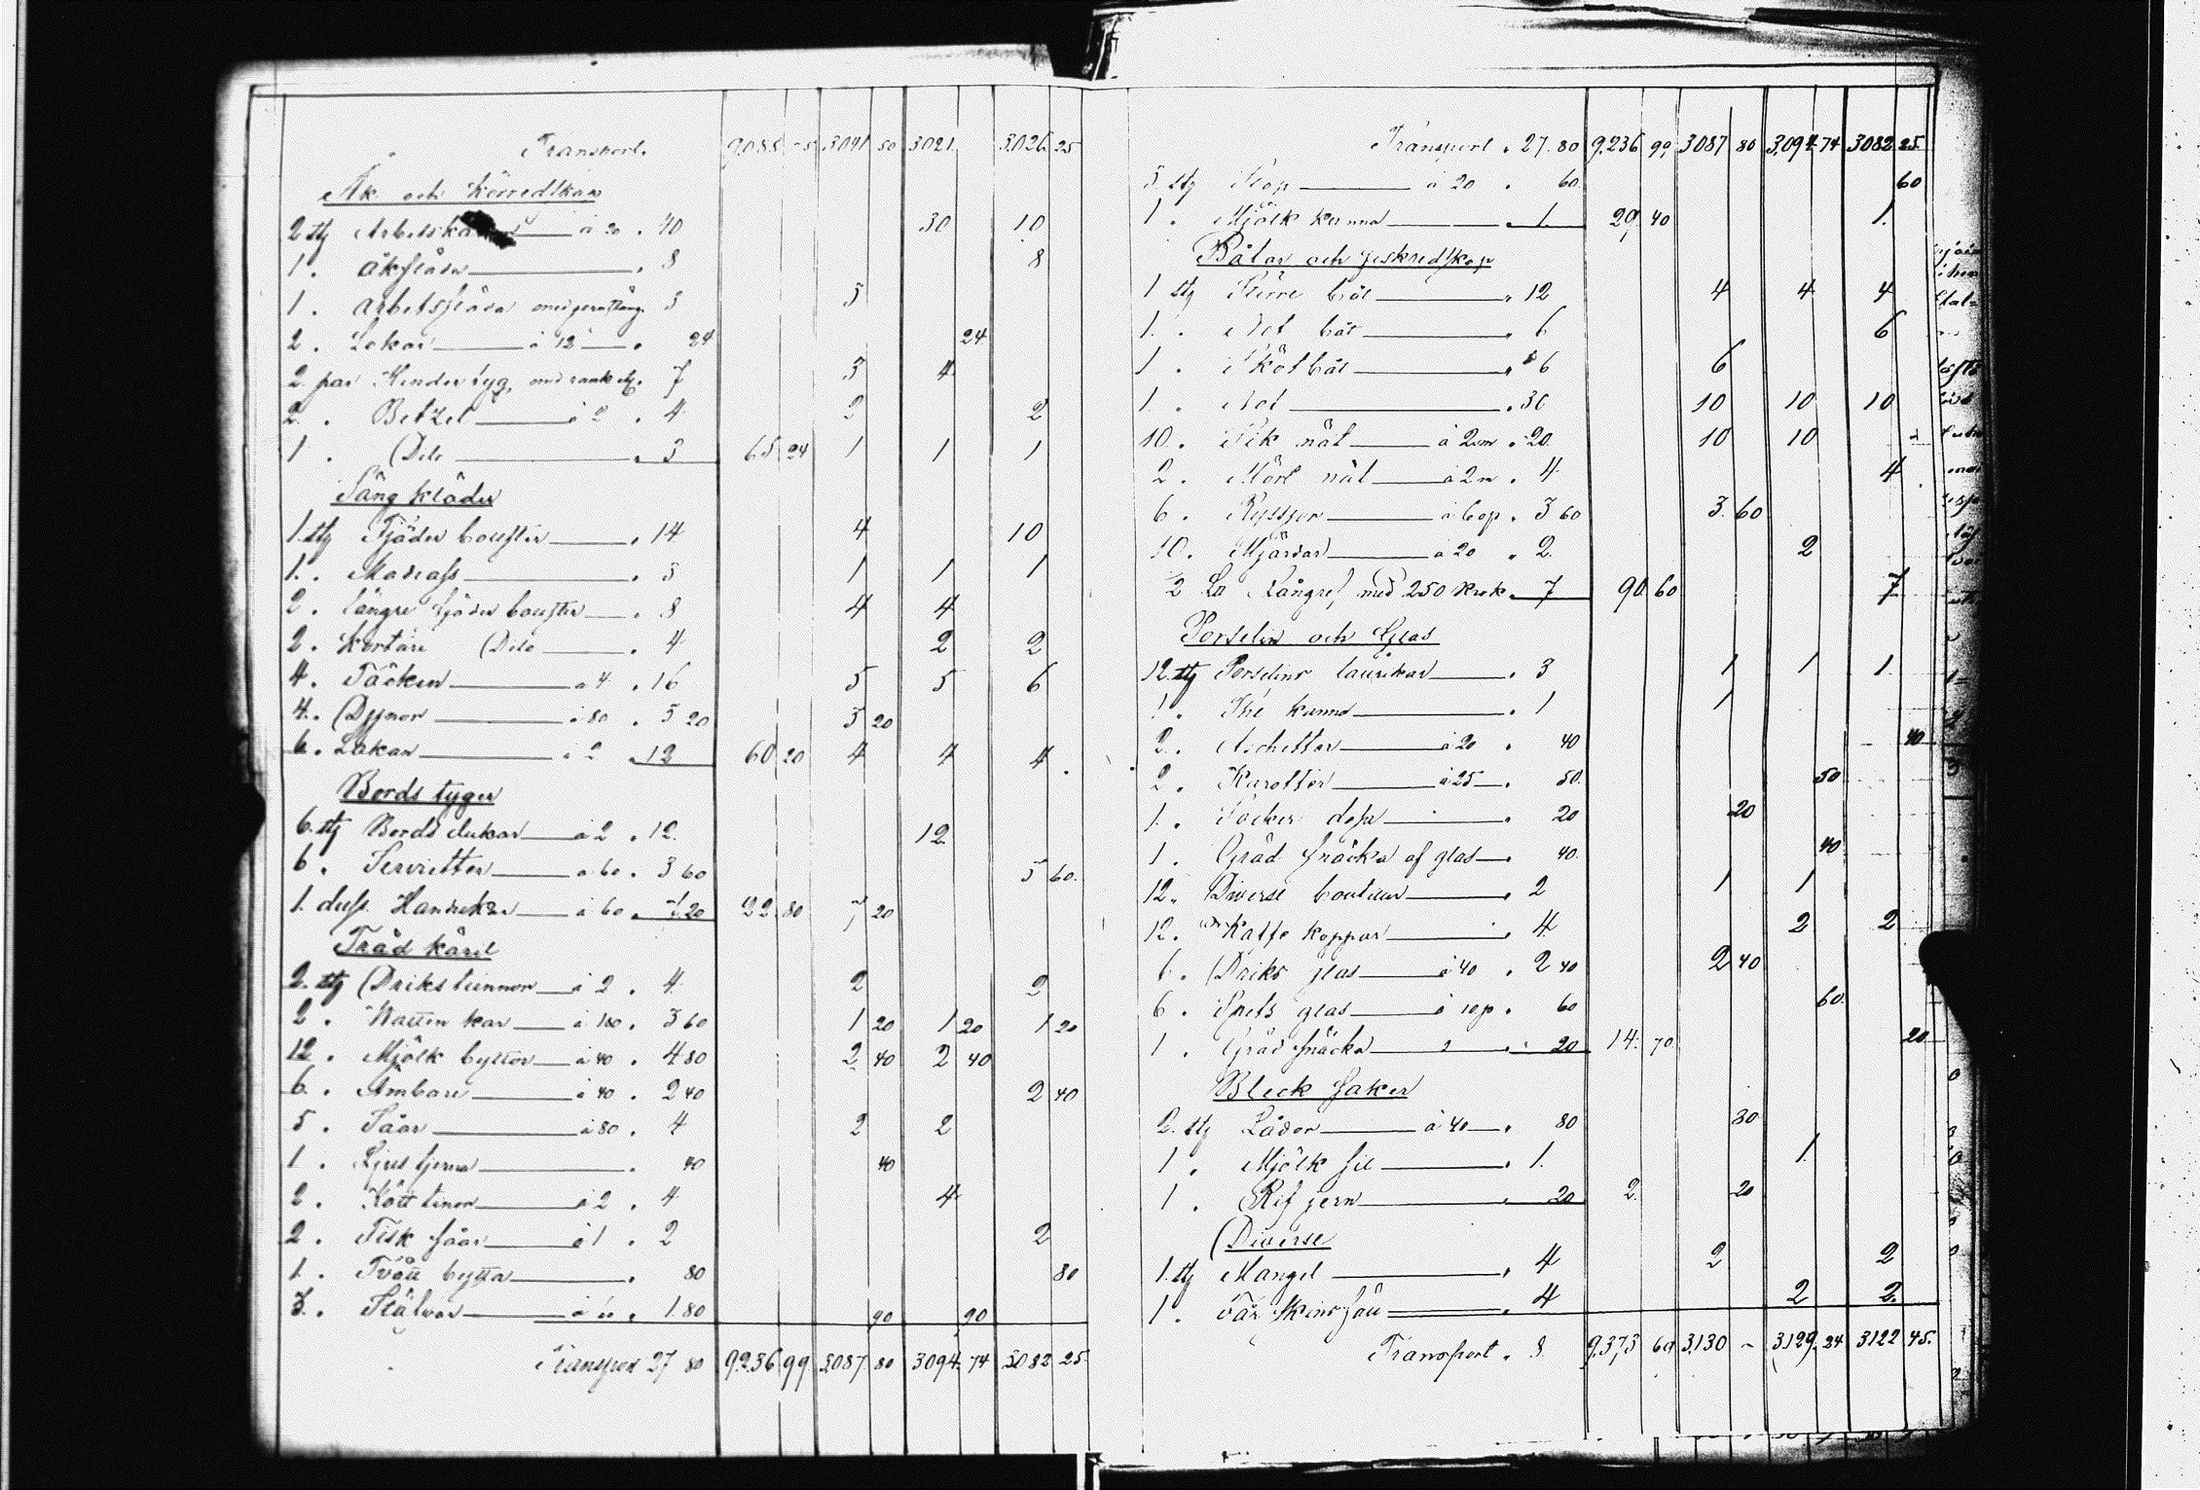 Transport. 9,088 75 3091 50 3021 3,026 25
Åk och Körredskap
2 stj Arbetskä à 20 . 40 30 10
1 . Åksläda . 8 8
1 . Arbetssläda med 5 5
2 . à 12 . 24 24
2 par med . 7 3 4
2 . Betzel à 2 . 4 2 2
1 . Dito . 3 65 24 1 1 1
Säng kläder
1. stj Fjäder bouster . 14 4 10
1. . Madrass . 3 1 1 1
2 . längre fjäder bouster . 8 4 4
2 . Kortare Dito . 4 2 2
4 . Täcken à 4 . 16 5 5 6
4. . Dynor à 80 . 3 20 3 20
6 . Lakan à 2 12 60 20 4 4 4
Bords tyger
6. stj Bords dukar à 2 . 12. 12
6 . Servietter à 60 . 3 60 3 60.
1. duss. Handukar à 60 . 7.20 22 80 7 20
Träd käril
2. stj Driks tunnor à 2 . 4 2 2
2 . Watten kar à 180 . 3 60 1 20 1 20 1 20
12 . Mjölk byttor à 40 . 4 80 2 40 2 40
6. . Ämbare à 40 . 2 40 2 40
5 . Såar à 80 . 4 2 2
1 . . 40 40
2 . Kött tinor à 2 . 4 4
2 . Fisk såar à 1 . 2 2
1 . Tvätt bytta . 80 80
3. . à 60 . 1.80 90 90
Transport 27 80 9,236 99 3,087 80 3094 74 3082 25
Transport . 27. 80 9,236 99 3,087 80 3,094 74 3082 25.
3 stj Stop à 20 . 60. 60
1 . Mjölk kanna . 1. 29, 40 1.
Båtar och fiskredskap
1 stj Större båt . 12 4 4 4
1. . Not båt . 6 6
1 . Sköt båt . 6 6
1. . Not . 30 10 10 10
10. . Sik nät à 2 . 20 10 10
2 . Mört nät à 2 . 4 4
6 . Ryssjor à 60 . 3 60 3. 60
10. . Mjärdar à 20 . 2 2
2 Långref med 250 Krok 7 90 60 7
Porselin och Glas
12. stj Porselins taürikar . 3 1 1 1
1. . The kanna . 1 1
2. . Aschetter à 20 . 40 40
2 . Karotter à 25 . 50. 50
1. . Socker dosa . 20 20
1. . Gräd snäcka af glas . 40. 40
12. Diverse bouteier . 2 1 1
12. . Kaffe koppar . 4 2 2
6. . Driks glas à 40 . 2 40 2 40
6 . Spets glas à 10 . 60 60
1 . Gräd snäcka . 20 14. 70 20
Bleck saker
2. stj Lådor à 40 . 80 30
1 . Mjölk sil . 1. 1.
1 . Rif jern . 20 2. 20
Diverse
1. stj Mangel . 4 2 2
1 . Får skins fäll . 4 2 2.
Transport . 8 9,373 69 3,130 - 3,129 24 3122 45.